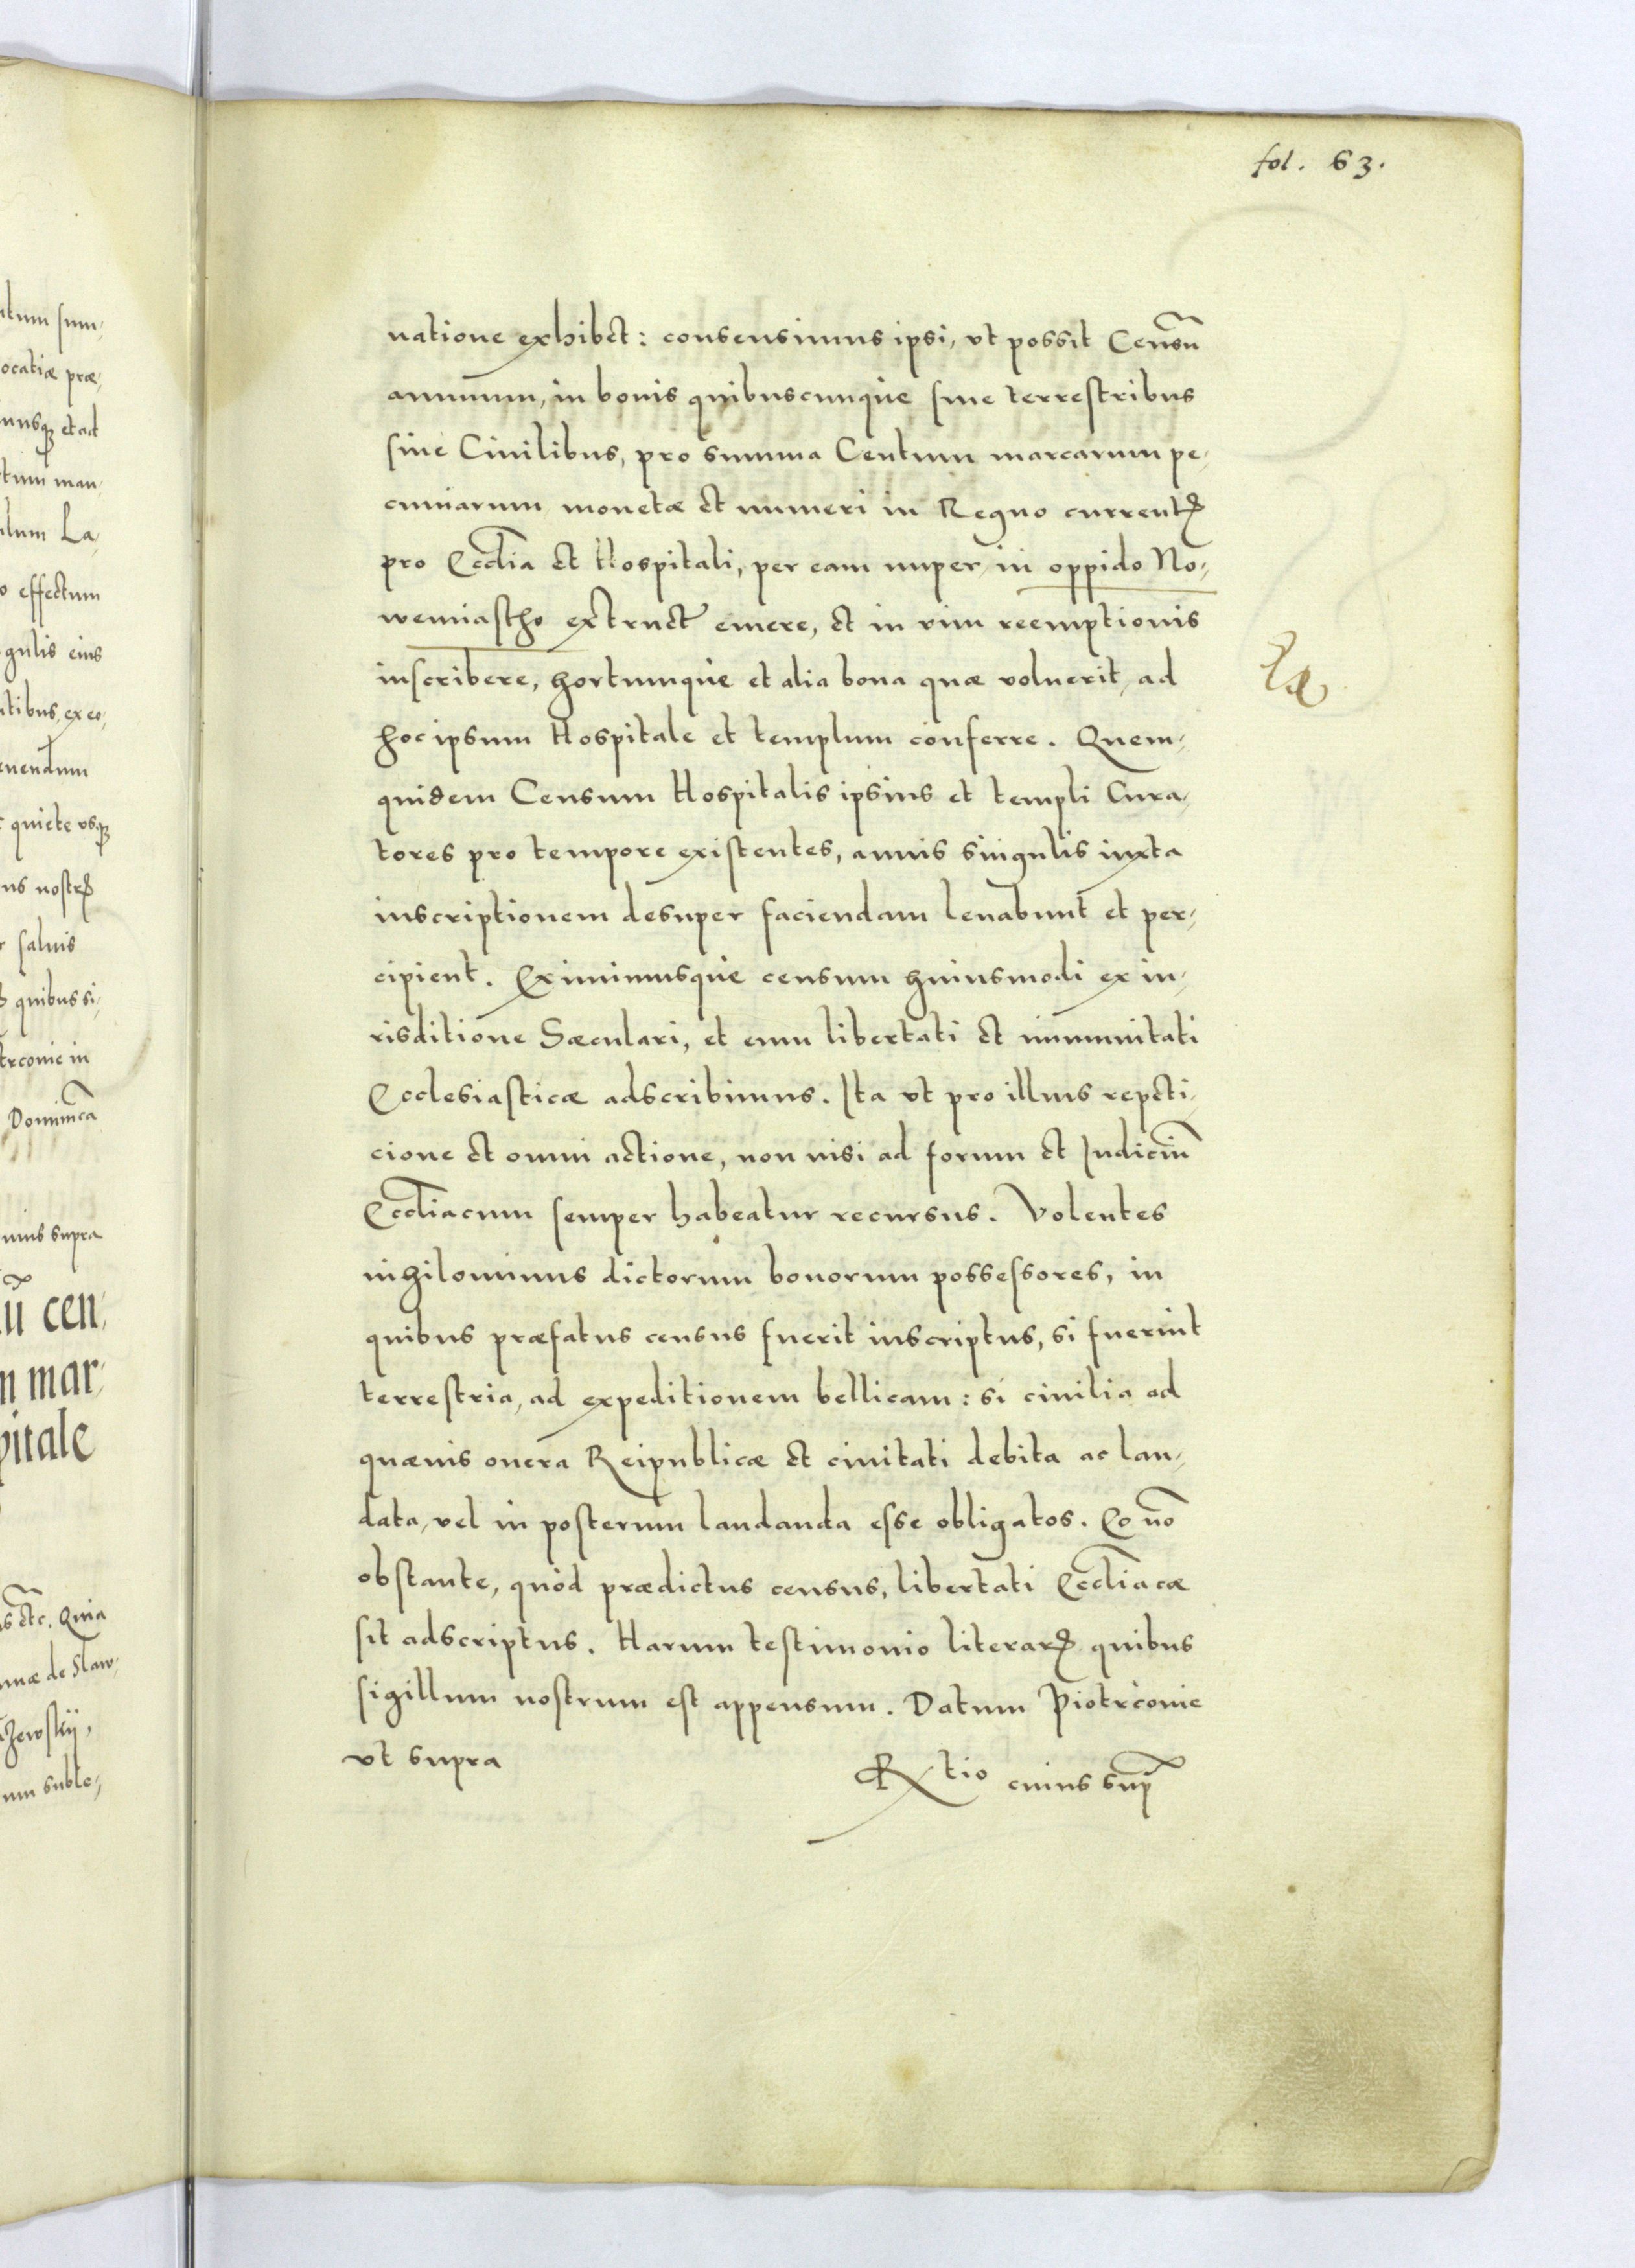 fol. 63.
natione exhibet: consensimus ipsi, vt possit Censũ
annuum, in bonis quibuscunque siue terrestribus
siue Ciuilibus, pro summa Centum marcarum pe-
cuniarum monetæ et numeri in Regno currentꝭ
pro Eccl̃ia et Hospitali, per eam nuper in oppido No-
wemiastho extruct̃ emere, et in vim reemptionis
inscribere, hortumque et alia bona quæ voluerit, ad
hoc ipsum Hospitale et templum conferre. Quem-
quidem Censum Hospitalis ipsius et templi Cura-
tores pro tempore existentes, annis singulis iuxta
inscriptionem desuper faciendam leuabunt et per-
cipient. Eximimusque censum huiusmodi ex iu-
risditione Sæculari, et eum libertati et immunitati
Ecclesiasticæ adscribimus. Ita vt pro illius repeti-
cione et omni actione, non nisi ad forum et Iudiciũ
Eccl̃iacum semper habeatur recursus. Volentes
nihilominus dictorum bonorum possessores, in
quibus præfatus census fuerit inscriptus, si fuerint
terrestria, ad expeditionem bellicam: si ciuilia ad
quæuis onera Reipublicæ et ciuitati debita ac lau-
data, vel in posterum laudanda esse obligatos. Eo nõ
obstante, quòd prædictus census, libertati Eccl̃iacæ
sit adscriptus. Harum testimonio literarꝝ quibus
sigillum nostrum est appensum. Datum Piotrconie
vt supra
Rtio cuius sup̃